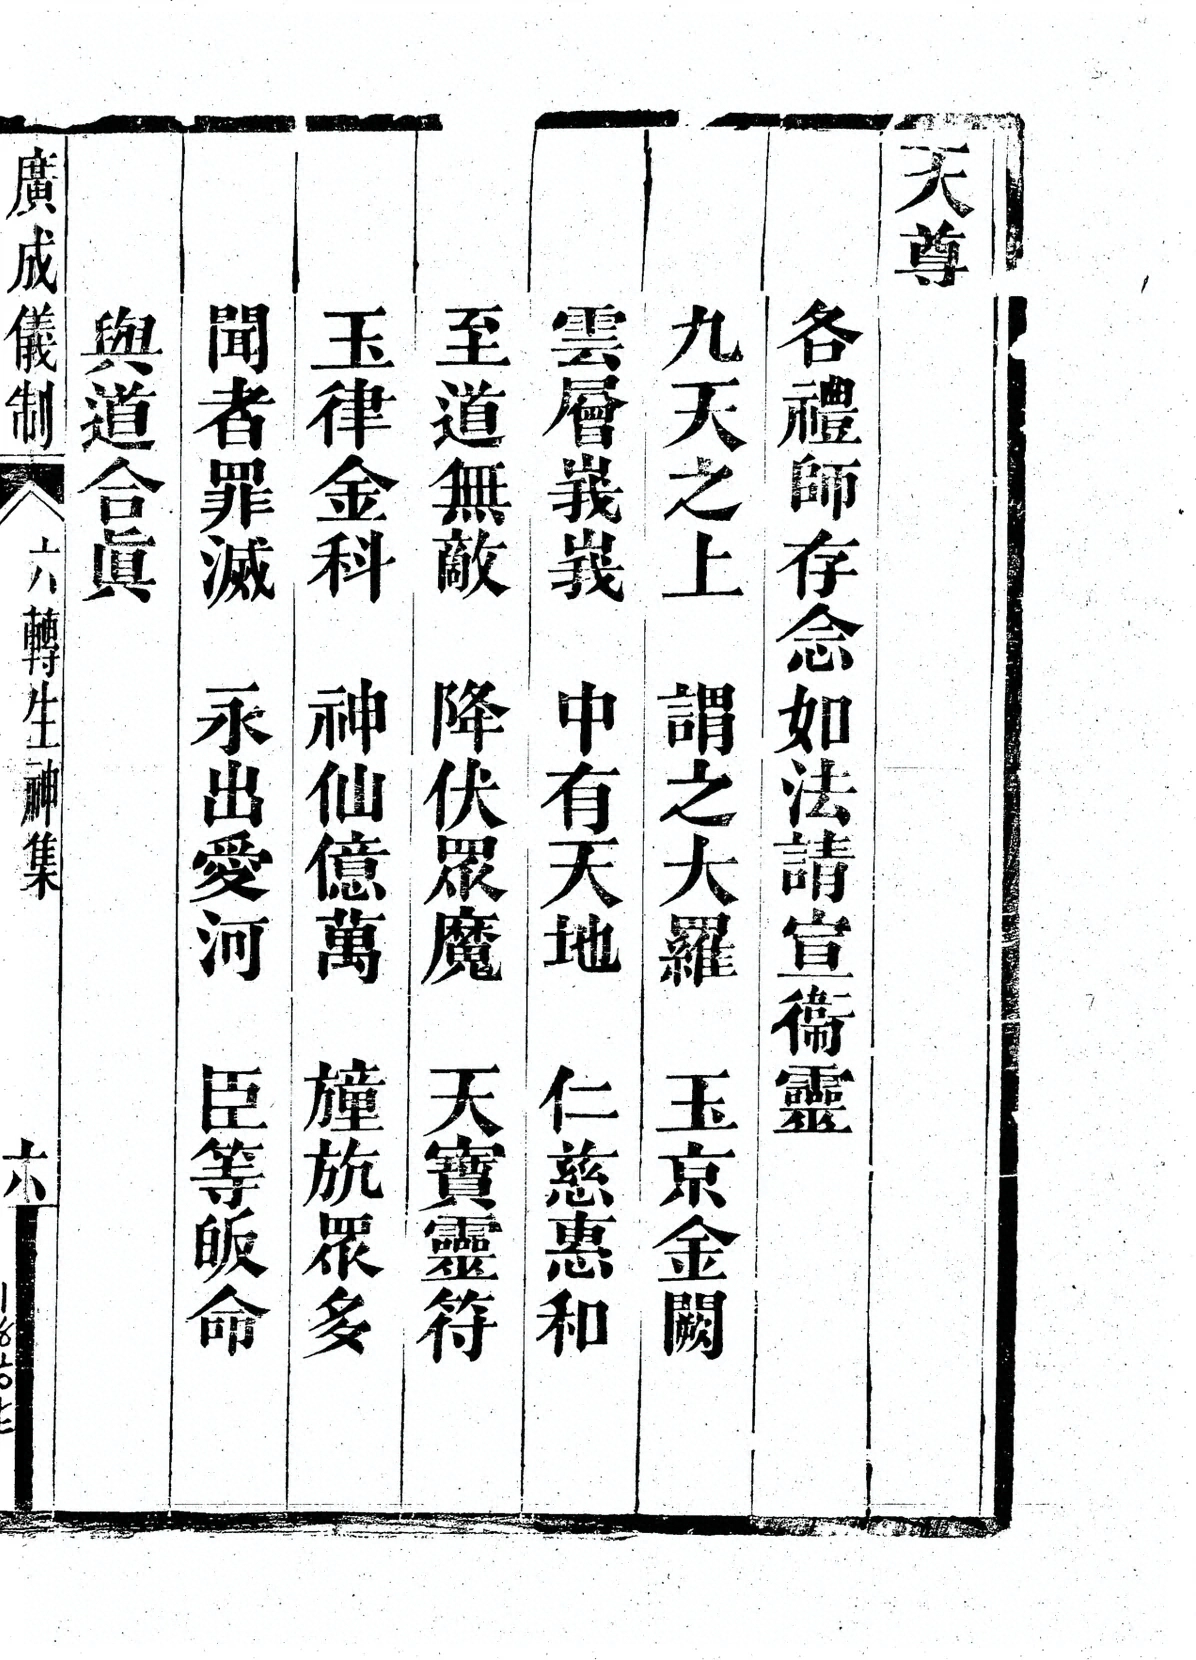 天尊
各禮師存念如法請宣衞靈
九天之上　謂之大羅　玉京金闕
雲層峩峩　中有天地　仁慈惠和
至道無敵　降伏眾魔　天寶靈符
玉律金科　神仙億萬　㠉斻眾多
聞者罪滅　永出愛河　臣等皈命
與道合眞
廣成儀制　六轉生神集　六